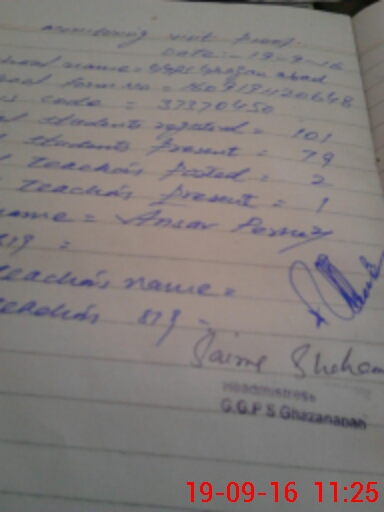 monitoring visit proof.
Date:- 19-9-16
school name = GGPS Ghazanabad
form no = 160919120648
code = 37370450
students registered = 101
students present = 79
teachers posted = 2
teachers present = 1
name = Ansar Pervaiz
sig =
teachers name =
teachers sig =
Saima Shaheen
Headmistress
G.G.P.S Ghazanabad
19-09-16 11:25